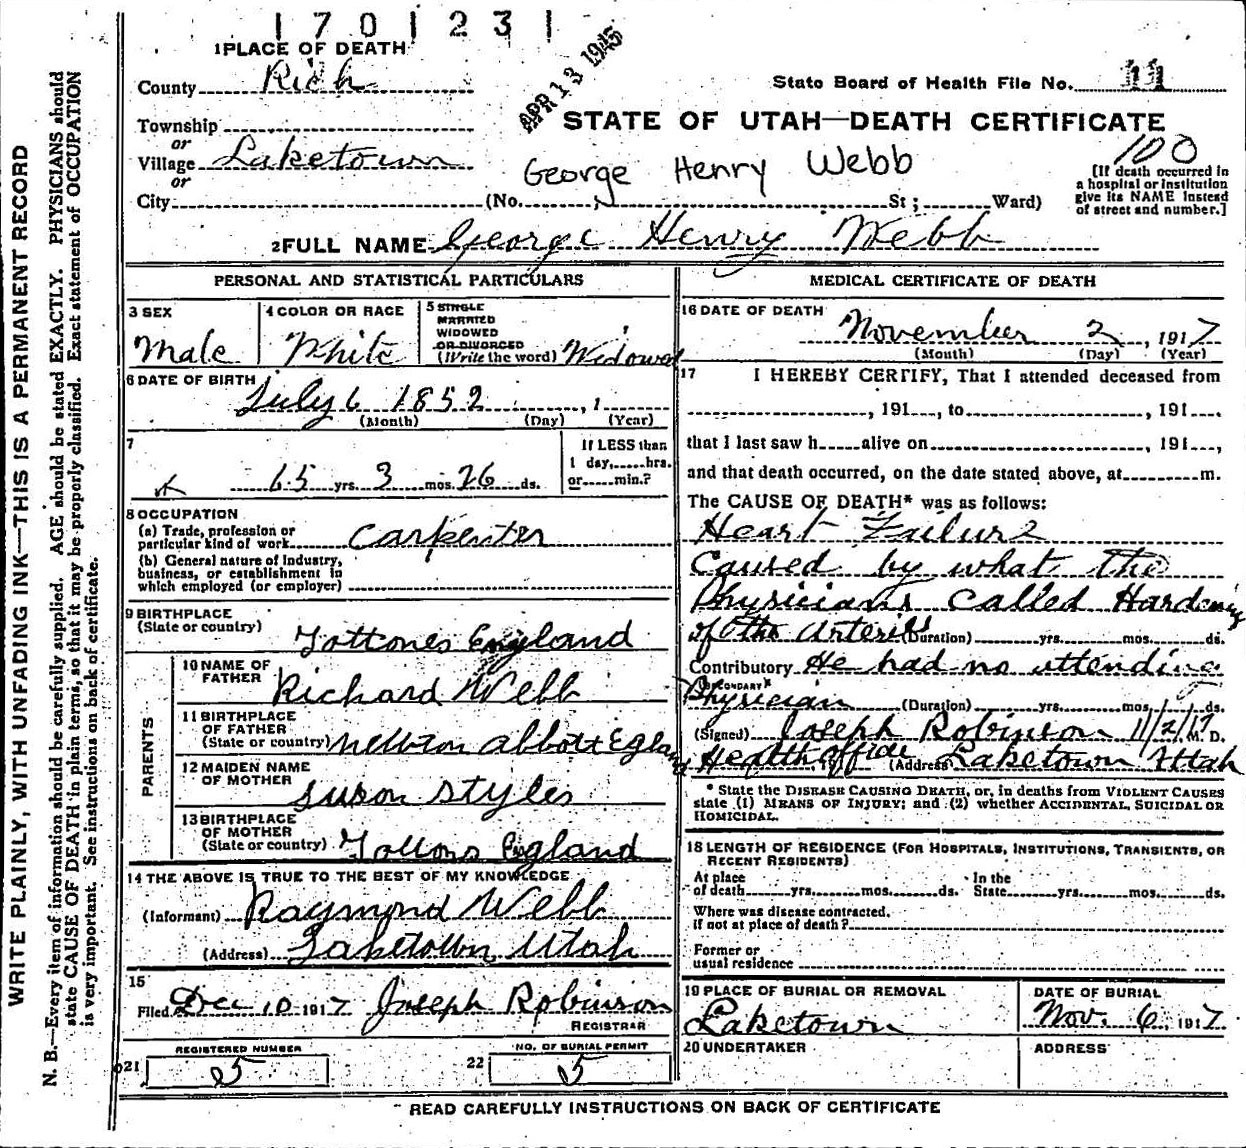 1 7 0 1 2 3 1
1 PLACE OF DEATH
APR 13 1945
County Rich
State Board of Health File No. 11
Township
STATE OF UTAH—DEATH CERTIFICATE
or
Village Laketown
George Henry Webb
100
or
City (No. St; Ward)
[If death occurred in
a hospital or institution
give its NAME instead
of street and number.]
2 FULL NAME George Henry Webb
PERSONAL AND STATISTICAL PARTICULARS
3 SEX
Male
4 COLOR OR RACE
White
5 SINGLE
MARRIED
WIDOWED
OR DIVORCED
(Write the word) Widowed
6 DATE OF BIRTH July 6 1852 , 1
(Month) (Day) (Year)
7
65 yrs. 3 mos. 26 ds.
If LESS than
1 day, hrs.
or min.?
8 OCCUPATION
(a) Trade, profession or
particular kind of work Carpenter
(b) General nature of industry,
business, or establishment in
which employed (or employer)
9 BIRTHPLACE
(State or country) England
PARENTS
10 NAME OF
FATHER Richard Webb
11 BIRTHPLACE
OF FATHER
(State or country) Newton Abbott Egland
12 MAIDEN NAME
OF MOTHER Suson Styles
13 BIRTHPLACE
OF MOTHER
(State or country) England
14 THE ABOVE IS TRUE TO THE BEST OF MY KNOWLEDGE
(Informant) Raymond Webb
(Address) Laketown Utah
15
Filed Dec 10 1917 Joseph Robinson
REGISTRAR
21 REGISTERED NUMBER
5
22 NO. OF BURIAL PERMIT
5
MEDICAL CERTIFICATE OF DEATH
16 DATE OF DEATH
November 2, 1917
(Month) (Day) (Year)
17 I HEREBY CERTIFY, That I attended deceased from
, 191 , to , 191 .
that I last saw h alive on , 191 ,
and that death occurred, on the date stated above, at m.
The CAUSE OF DEATH* was as follows:
Heart Failure
Caused by what the
Physicians called Hardening
of the Arteries (Duration) yrs. mos. ds.
Contributory He had no attending
(SECONDARY)
Physician (Duration) yrs. mos. ds.
(Signed) Joseph Robinson 11/2/17 M. D.
Health officer , 191 (Address) Laketown Uttah
* State the DISEASE CAUSING DEATH, or, in deaths from VIOLENT CAUSES
state (1) MEANS OF INJURY; and (2) whether ACCIDENTAL, SUICIDAL OR
HOMICIDAL.
18 LENGTH OF RESIDENCE (FOR HOSPITALS, INSTITUTIONS, TRANSIENTS, OR
RECENT RESIDENTS)
At place
of death yrs. mos. ds.
In the
State yrs. mos. ds.
Where was disease contracted.
if not at place of death?
Former or
usual residence
19 PLACE OF BURIAL OR REMOVAL
Laketown
DATE OF BURIAL
Nov. 6, 1917
20 UNDERTAKER
ADDRESS
READ CAREFULLY INSTRUCTIONS ON BACK OF CERTIFICATE
WRITE PLAINLY, WITH UNFADING INK—THIS IS A PERMANENT RECORD
N. B.—Every item of information should be carefully supplied. AGE should be stated EXACTLY. PHYSICIANS should
state CAUSE OF DEATH in plain terms, so that it may be properly classified. Exact statement of OCCUPATION
is very important. See instructions on back of certificate.